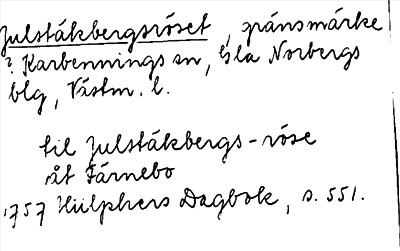 Julstäkbergsröset, gränsmärke
? Karbennings sn, Gla Norbergs
blg, Västm. l.
til Julstäkbergs-röse
åt Färnebo
1757 Hülphers Dagbok, s. 551.